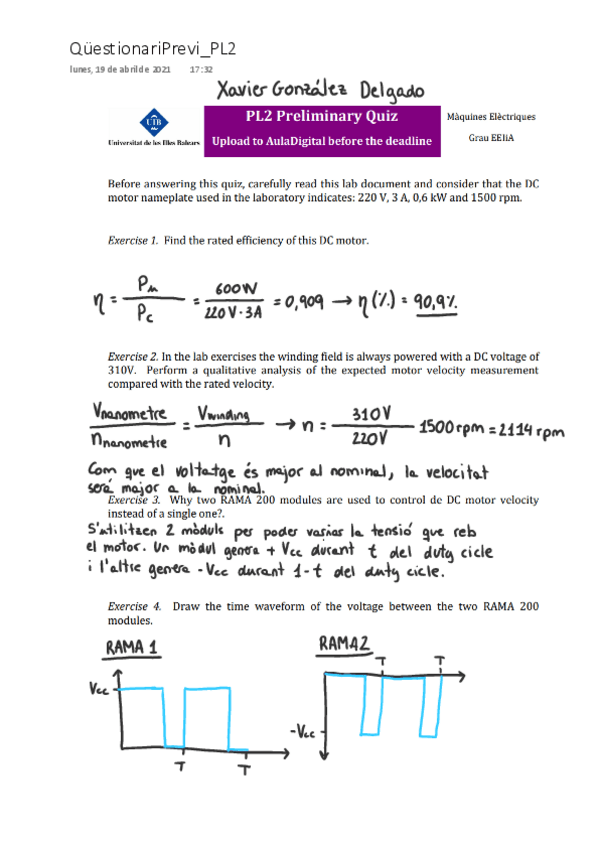 QüestionariPrevi_PL2
lunes, 19 de abril de 2021 17:32
Xavier González Delgado
UIB
Universitat de les Illes Balears
PL2 Preliminary Quiz
Upload to AulaDigital before the deadline
Màquines Elèctriques
Grau EEIiA
Before answering this quiz, carefully read this lab document and consider that the DC
motor nameplate used in the laboratory indicates: 220 V, 3 A, 0,6 kW and 1500 rpm.
Exercise 1. Find the rated efficiency of this DC motor.
η = Pm / Pc = 600W / 220V·3A = 0,909 → η(%) = 90,9%
Exercise 2. In the lab exercises the winding field is always powered with a DC voltage of
310V. Perform a qualitative analysis of the expected motor velocity measurement
compared with the rated velocity.
Vnanometre / nnanometre = Vwinding / n → n = 310V / 220V 1500rpm = 2114 rpm
Com que el voltatge és major al nominal, la velocitat
serà major a la nominal.
Exercise 3. Why two RAMA 200 modules are used to control de DC motor velocity
instead of a single one?.
S'utilitzen 2 mòduls per poder variar la tensió que reb
el motor. Un mòdul genera + Vcc durant t del duty cicle
i l'altre genera -Vcc durant 1-t del duty cicle.
Exercise 4. Draw the time waveform of the voltage between the two RAMA 200
modules.
RAMA 1
Vcc
T
T
RAMA2
T
T
-Vcc